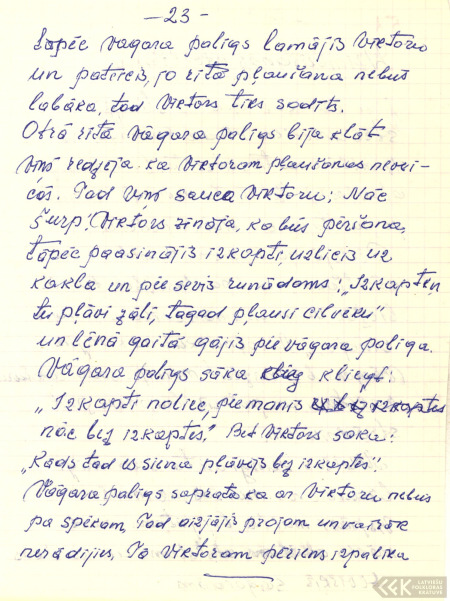 - 23 -
Tapēc vāgara palīgs lamājis Viktoru
un pateicis, ja rītā pļaušana nebus
labāka, tad Viktors tiks sodīts.
Otrā rītā vāgara palīgs bija klāt
viņš redzeja ka Viktoram pļaušanas nevei-
cās. Tad viņš sauca Viktoru; Nāc
šurp! Viktors zināja, ka būs pēršana,
tāpēc paasinājis izkapti, uzlicis uz
kakla un pie sevis runādams: "Izkapten
tu pļāvi zāli, tagad pļausi cilvēku"
un lēnā gaitā gājis pie vāgara palīga.
Vāgara palīgs sāka kliegt:
"Izkapti noliec, pie manis izkaptes
nāc bez izkaptes." Bet Viktors saka:
"Kāds tad es siena pļāvējs bez izkaptes".
Vāgara palīgs saprata ka ar Viktoru nebus
pa spēkam, Tad aizjājis projam un vairāk
nerādijies, Tā Viktoram pēriens izpalika
LATVIEŠU
FOLKLORAS
KRĀTUVE